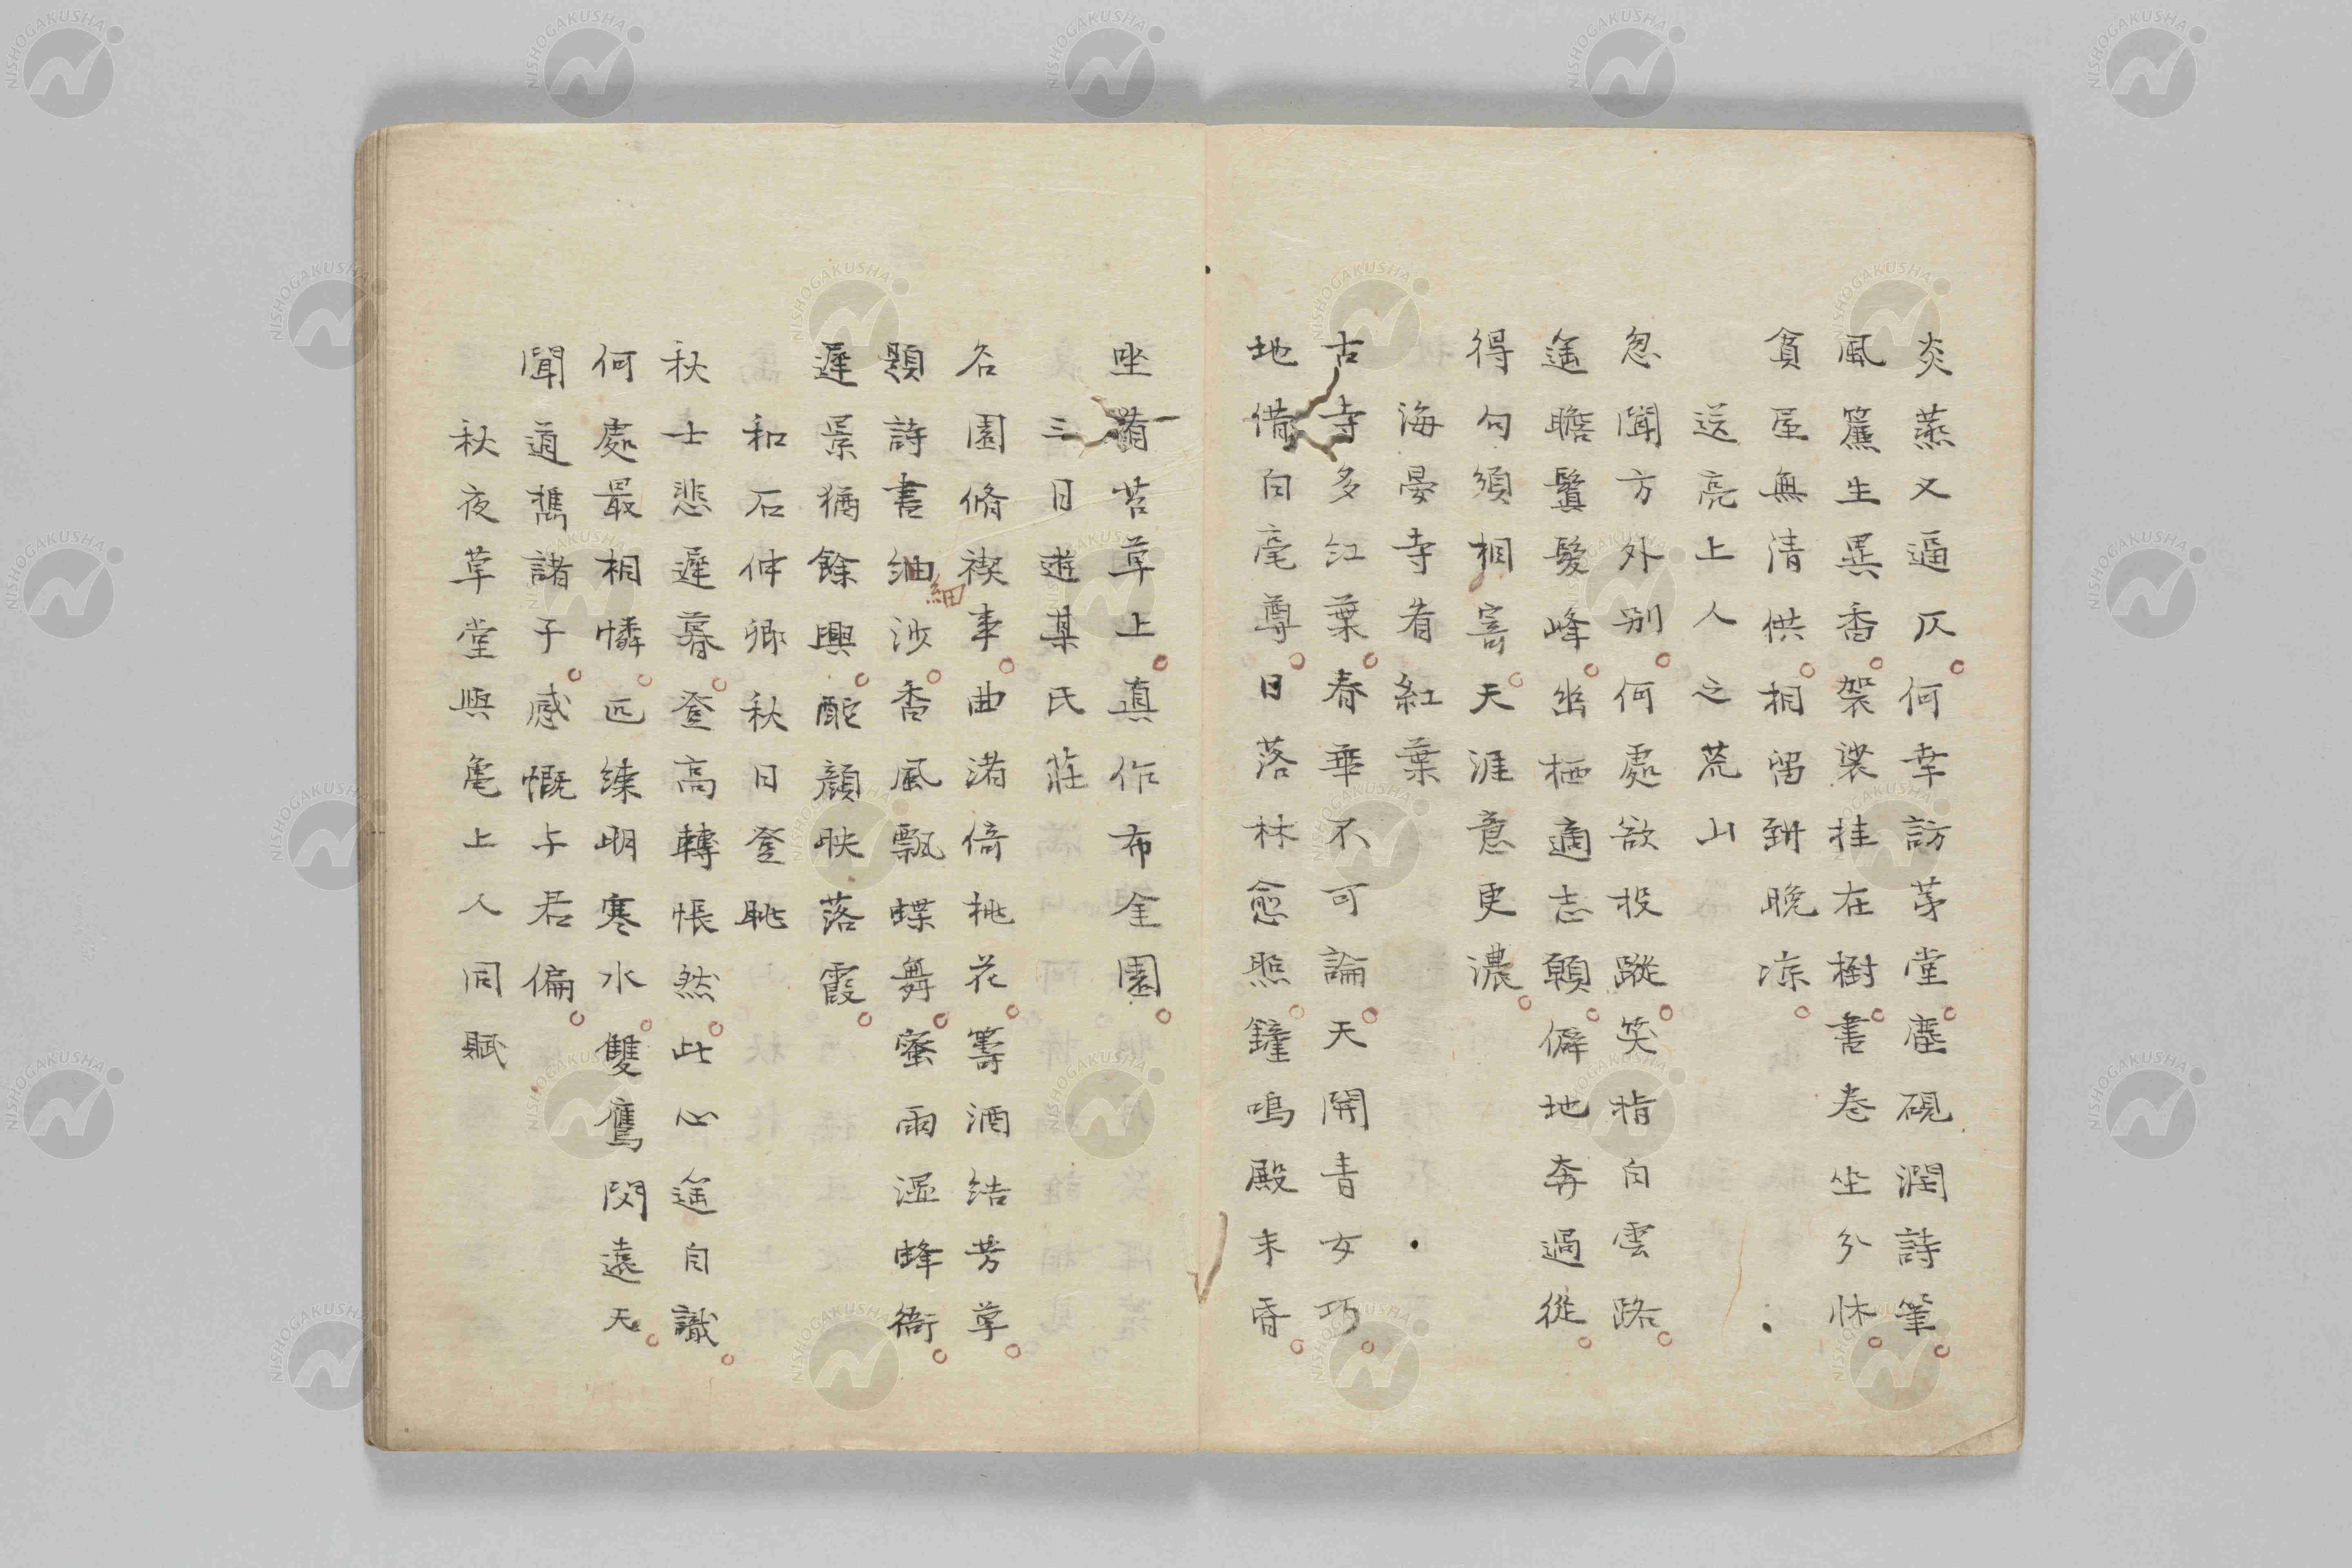 炎蒸又逼仄何幸訪茅堂塵硯潤詩筆
風簾生異香袈裟挂在樹書巻坐分牀
貧屋無清供相留到晩凉
送亮上人之荒山
忽聞方外别何處欲投蹤笑指白雲路
遥瞻鬟髮峰幽栖適志願僻地奔過從
得句須相寄天涯意更濃
海晏寺看紅葉
古寺多江葉春華不可論天開青女巧
地借白毫尊日落林愈照鐘鳴殿未昏
坐看苔草上真作布金園
三日遊某氏莊
名園脩禊事曲渚倚桃花籌酒結芳草
題詩書紬沙香風飄蝶舞蜜雨湿蜂衙
細
遲景猶餘興酡顔映落霞
和石仲卿秋日登眺
秋士悲遲暮登高轉悵然此心遥自識
何處最相憐匹練明寒水雙鷹閃遠天
聞道携諸子感慨与君偏
秋夜草堂與亀上人同賦
NISHOGAKUSHA